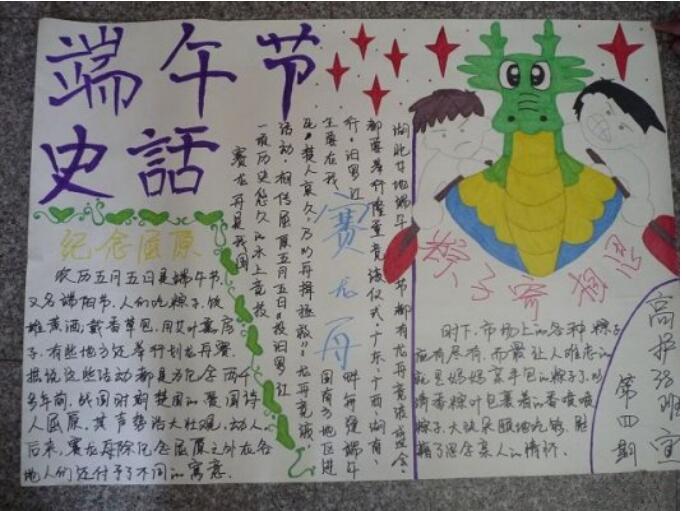 端午节
史话
纪念屈原
农历五月五日是端午节,
又名端阳节。人们吃粽子、饮
雄黄酒、戴香草包、用艾叶熏房
子。有些地方还举行划龙舟赛。
据说这些活动都是为纪念两千
多年前,战国时期楚国的爱国诗
人屈原。其声势浩大壮观,动人。
后来,赛龙舟除纪念屈原之外在各
地人们还付予了不同的寓意。
赛龙舟
赛龙舟是我国
一项历史悠久的水上竞技
活动。相传屈原五月五日投汨罗江
死。楚人哀之,乃以舟拯救。龙舟竞渡,
主要在我
国南方地区进
行。汨罗江
畔每逢端午
都要举行隆重竞渡仪式。广东、广西、湖南、
湖北等地端午节都有龙舟竞渡盛会。
粽子寄相思
时下,市场上的各种粽子
应有尽有,而最让人难忘的
就是妈妈亲手包的粽子了,以
清香粽叶包裹着的香喷喷
粽子,大快朵颐地吃够,
了思念亲人的情怀。
高护班宣
第四期